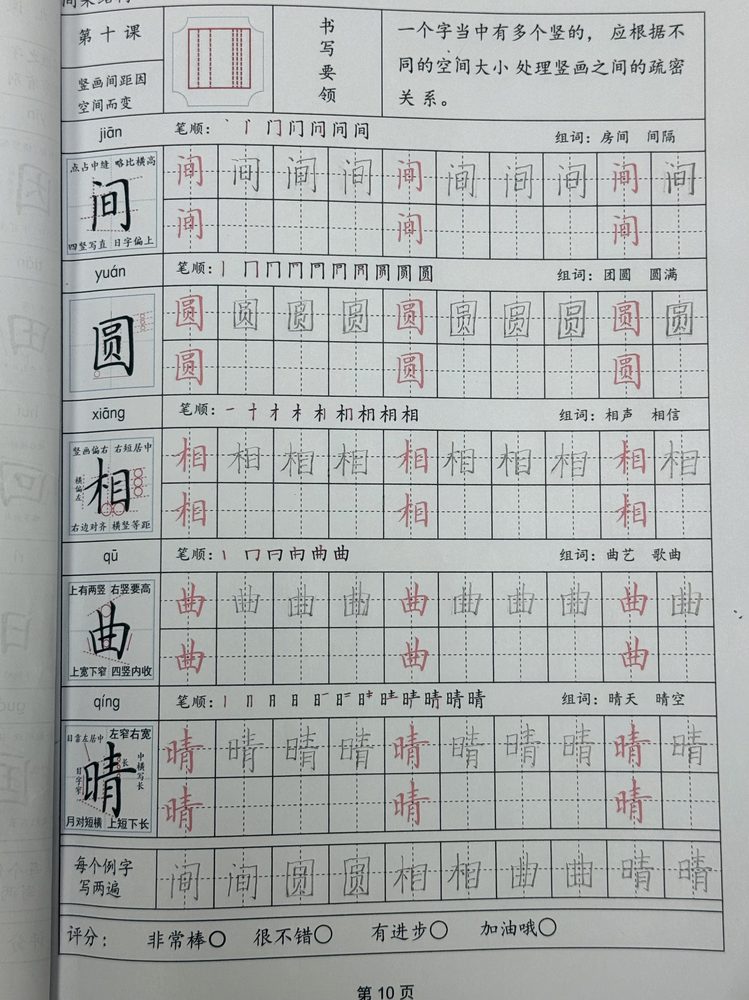 间架结构
第十课
竖画间距因
空间而变
书写要领
一个字当中有多个竖的，应根据不
同的空间大小处理竖画之间的疏密
关系。
jiān
笔顺：丶丨门门问问间
组词：房间 间隔
点占中缝 略比横高
间
四竖写直 日字偏上
间 间 间 间 间 间 间 间 间 间
间 间 间
yuán
笔顺：丨冂冂冂冂冃冃圆圆圆
组词：团圆 圆满
圆
圆 圆 圆 圆 圆 圆 圆 圆 圆 圆
圆 圆 圆
xiāng
笔顺：一十才木朩机机相相
组词：相声 相信
竖画偏右 右短居中
横偏左
相
右边对齐 横竖等距
相 相 相 相 相 相 相 相 相 相
相 相 相
qū
笔顺：丨冂曰冉曲曲
组词：曲艺 歌曲
上有两竖 右竖要高
曲
上宽下窄 四竖内收
曲 曲 曲 曲 曲 曲 曲 曲 曲 曲
曲 曲 曲
qíng
笔顺：丨冂日日日一日二日キ日龶晴晴晴晴
组词：晴天 晴空
日靠左居中 左窄右宽
日字窄
长
中横写长
晴
月对短横 上短下长
晴 晴 晴 晴 晴 晴 晴 晴 晴 晴
晴 晴 晴
每个例字
写两遍
间 间 圆 圆 相 相 曲 曲 晴 晴
评分： 非常棒○ 很不错○ 有进步○ 加油哦○
第 10 页